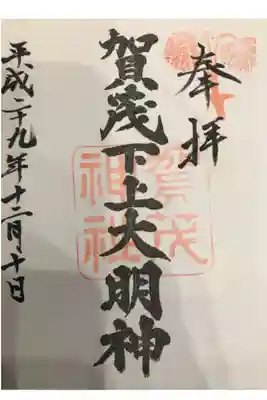 奉拝
賀茂下上大明神
賀茂
神社
平成二十九年十一月十日